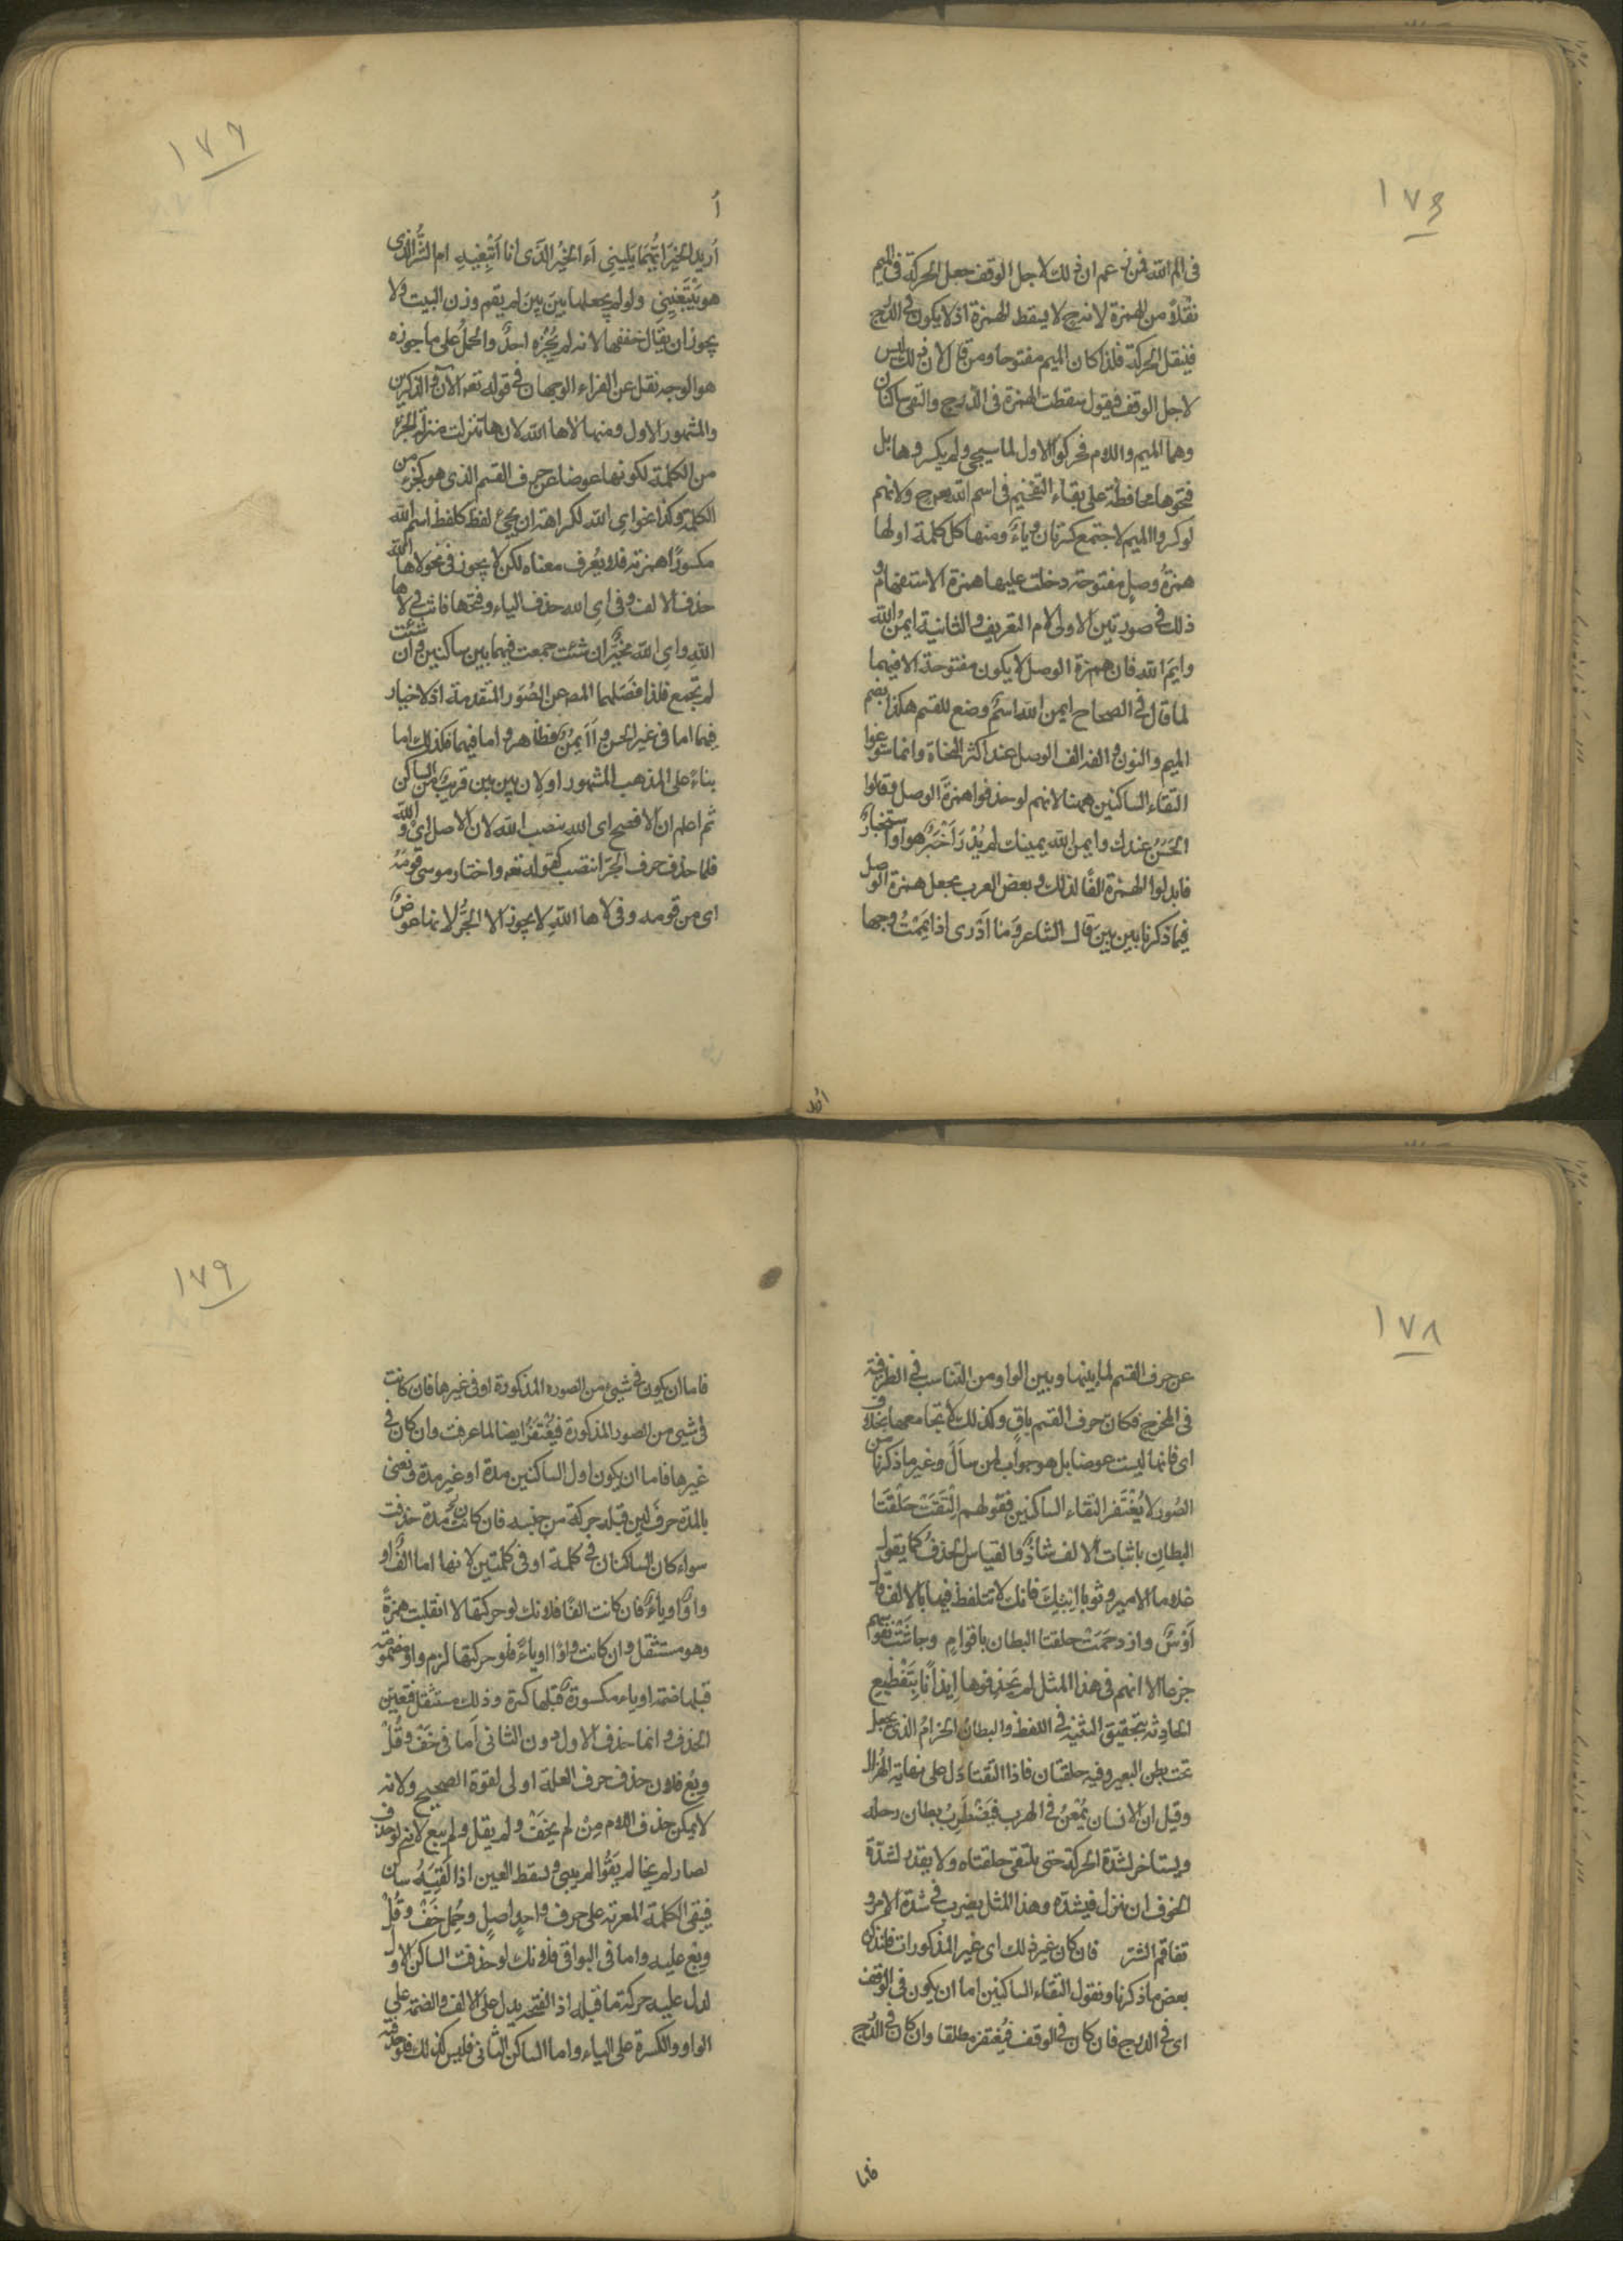 ١٧٤
فى الم الله فمن زعم ان ذلك لاجل الوقف جعل الحركة فى الميم
نقلاً من الهمزة لانه ح لا يسقط الهمزة اذ لا يكون فى الدرج
فينقل الحركة فلذا كان الميم مفتوحا ومن قال لان ذلك ليس
لاجل الوقف فيقول سقطت الهمزة فى الدرج والتقى ساكنان
وهما الميم واللام فحركوا الاول لما سيجئ ولم يكسروها بل
فتحوها محافظة على بقاء التفخيم فى اسم الله وح ولانهم
لو كسروا الميم لاجتمع كسرتان وياءٌ ومنها كل كلمة اولها
همزةُ وصلٍ مفتوحة دخلت عليها همزة الاستفهام و
ذلك فى صورتين الاولى لام التعريف والثانية ايمُنُ الله
وايمُ الله فان همزة الوصل لا يكون مفتوحة الا فيهما
لما قال فى الصحاح ايمن الله اسمٌ وضع للقسم هكذا بضم
الميم والنون والفه الف الوصل عند اكثر النحاة وانما سوغوا
التقاء الساكنين ههنا لانهم لو حذفوا همزة الوصل وقالوا
الحَسَنُ عندك وايمن الله يمينك لم يُدْرَ أَخَبَرٌ هو او استخبارٌ
فابدلوا الهمزة الفًا لذلك وبعض العرب يجعل همزة الوصل
فيما ذكرنا بين بين قال الشاعر وَمَا اَدْرِى اذا يَمَّمْتُ وجها
اُريد
١٧٦
أ
اُريد الخيرَ ايُّهُمَا يَلِيْنِى أَءَالخيرُ الَّذى انا اَبْتَغِيهِ ام الشَّرُّ الذى
هو يَبْتَغِينِى ولو لم يجعلها بينَ بينَ لم يقم وزن البيت ولا
يجوز ان يقال خففها لانه لم يُجِزْه احدٌ والحَمْلُ على ما جوزه
هو الوجه نقل عن القراء الوجهان فى قوله تعه الآن وآلذكرين
والمشهور الاول ومنها لاها الله لان ها تنزلت منزلة الجزء
من الكلمة لكونها عوضا عن حرف القسم الذى هو كجزء من
الكلمة وكذا نحو اى الله لكراهة ان يجئ لفظ كلفظ اسم الله
مكسورًا همزته فلا يُعرف معناه لكن لا يجوز فى نحو لاها الله
حذف الالف وفى اى الله حذف الياء وفتحها فانت فى لاها
اللهِ واى الله مخيّر ان شئت جمعت فيهما بين ساكنين وان شئت
لم تجمع فلذا فَصَلهما المصـ عن الصُوَر المتقدمة اذ لا خيار
فيها اما فى غير الحسن وأَ اَيْمُنُ فظاهر واما فيهما فكذلك اما
بناءً على المذهب المشهور او لان بين بين قريبٌ من الساكن
ثم اعلم ان الافصح اى الله بنصب الله لان الاصل اى والله
فلما حذف حرف الجر انتصب كقوله تعه واختار موسى قومَهُ
اى من قومه وفى لاها اللهِ لا يجوز الا الجرُّ لانها عوضٌ
١٧٨
عن حرف القسم لما بينها وبين الواو من التناسب فى الطرفية
فى المخرج فكان حرف القسم باقٍ وكذلك لا تجامعها بخلاف
اى فانها ليست عوضا بل هو جواب لمن سأَلَ وغير ما ذكرنا من
الصُوَر لا يُغْتَفر التقاء الساكنين فقولهم الْتَقَتْ حَلْقَتَا
البطانِ باثبات الالف شاذٌّ والقياس الحذفُ كما يقول
غلاما الامير وثوبا ابْنِكَ فانك لا تتلفظ فيها بالالف قال
اَوْسٌ وازدحَمَتْ حلقتا البطان باقوامٍ وجاشَتْ نفوسهم
جزعا الا انهم فى هذا المثل لم يَحْذِفوها اِيذانًا بِتَفْظيعِ
الحادثة بتحقيق التثنية فى اللفظ والبطان الحزامُ الذى يجعل
تحت بطن البعير وفيه حلقتان فاذا التقتا دل على نهاية الهُزال
وقيل ان الانسان يُمْعِنُ فى الهرب فيَضْطَرِبُ بطان رحله
ويستاخر لشدة الحركة حتى يلتقى حلقتاه ولا يقدر لشدة
الخوف ان ينزل فيشده وهذا المثل يضرب فى شدة الامر و
تفاقم الشر فان كان غير ذلك اى غير المذكورات فلنذكر
بعض ما ذكرنا ونقول التقاء الساكنين اما ان يكون فى الوقف
اى فى الدرج فان كان فى الوقف فيُغتفر مطلقا وان كان فى الدرج
فاما
١٧٩
فاما ان يكون فى شيئ من الصور المذكورة او فى غيرها فان كانت
فى شيئ من الصور المذكورة فيُغْتَفَرُ ايضا لما عرفت وان كان فى
غيرها فاما ان يكون اول الساكنين مدة او غير مدة ونعنى
بالمدة حرفَ لين قبله حركة من جنسه فان كانت مدة حذفت
سواء كان الساكنان فى كلمة او فى كلمتين لانها اما الفٌ او
واوٌ او ياءٌ فان كانت الفًا فلانك لو حركتها لانقلبت همزةً
وهو مستثقل وان كانت واوًا او ياءً فلو حركتها لزم واو مضمومة
قبلها ضمة او ياء مكسورةٌ قبلها كسرة وذلك مستثقل فتعيّن
الحذف وانما حذف الاول دون الثانى اَما فى خَفْ وقُلْ
وبِعْ فلان حذف حرف العلة اولى لقوة الصحيح ولانه
لا يمكن حذف اللام مِنْ لم يخَفْ ولم يقل ولم يبع لانه لو حذف
لصار لم يخا لم يَقُوْ لم يبى ويسقط العين اذا لَقِيَهُ ساكن
فيبقى الكلمة المعربة على حرف واحدٍ اصلٍ وحُمِل خَفْ وقُلْ
وبِعْ عليه واما فى البواقى فلانك لو حذفت الساكن الاول
لدل عليه حركة ما قبله اذ الفتحة يدل على الالف والضمة على
الواو والكسرة على الياء واما الساكن الثانى فليس كذلك فلو حذفته